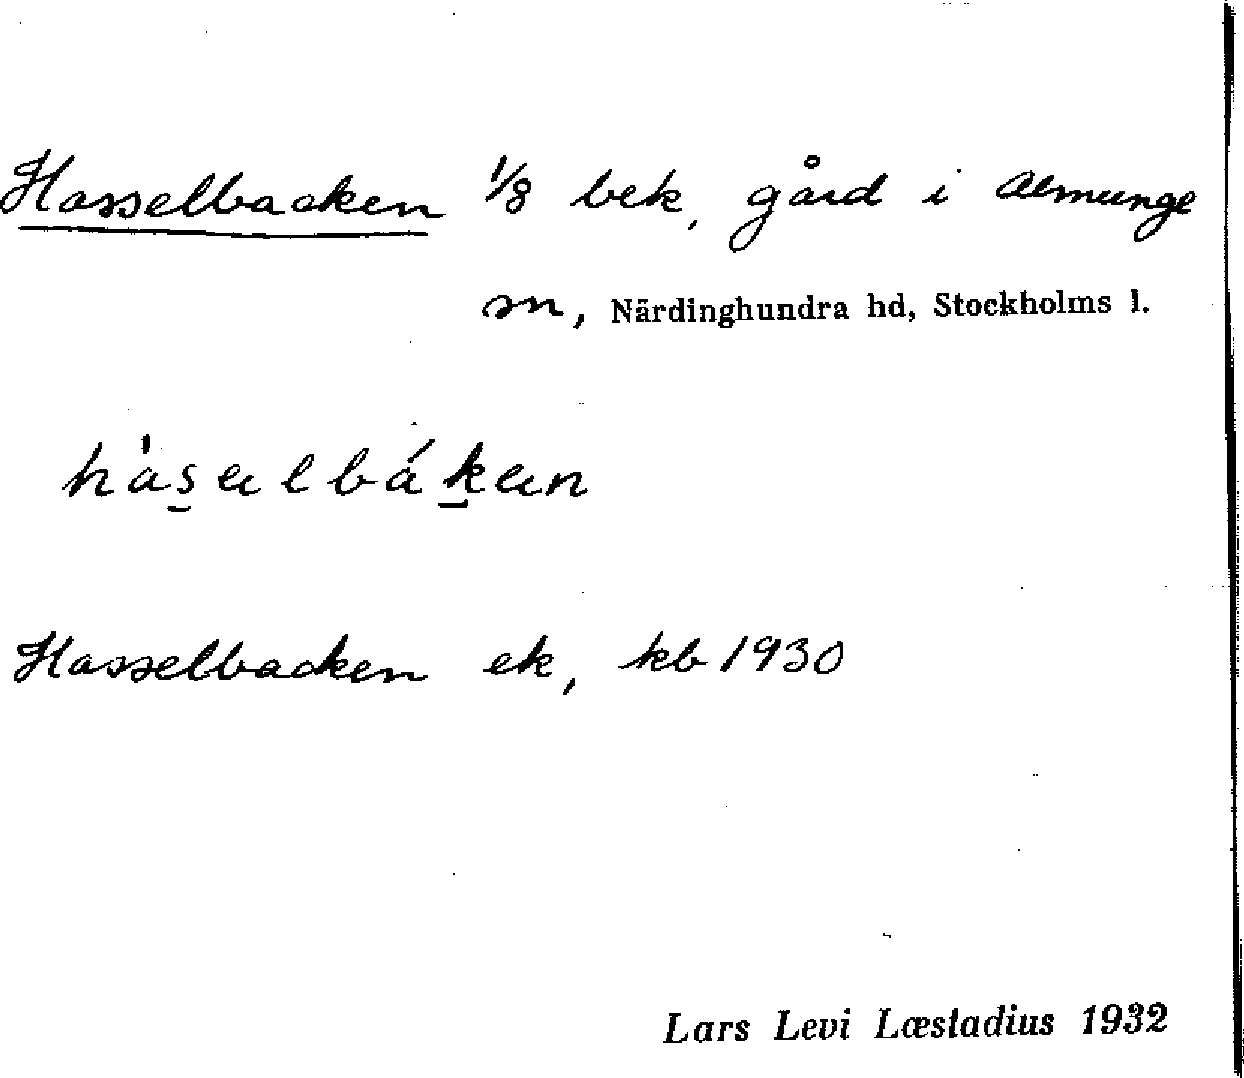 Hasselbacken 1/8 bek, gård i Almunge
sn, Närdinghundra hd, Stockholms l.
Hasselbacken ek, kb 1930
Lars Levi Læstadius 1932